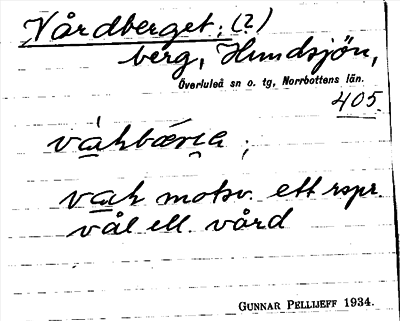 Vårdberget; (?)
berg, Hundsjön,
Överluleå sn o. tg, Norrbottens län.
405.
;
vah motsv. ett rspr.
vål ell. vård
GUNNAR PELLIJEFF 1934.